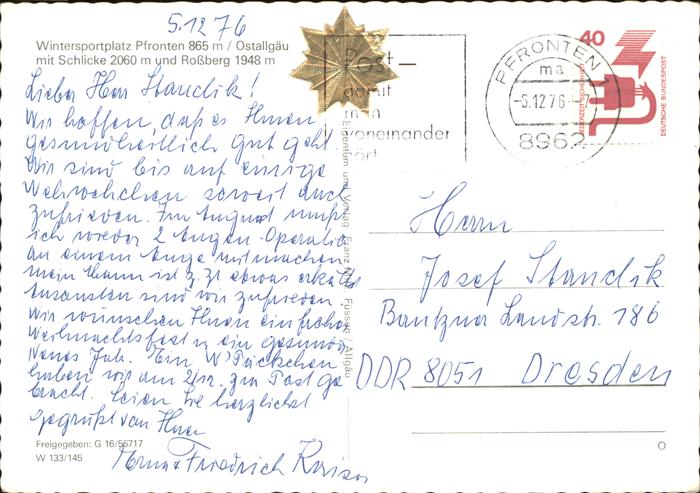 5.12.76
Wintersportplatz Pfronten 865 m / Ostallgäu
mit Schlicke 2060 m und Roßberg 1948 m
Lieber Herr Standik!
Wir hoffen, daß es Ihnen
gesundheitlich gut geht.
Wir sind bis auf einige
Wehwehchen soweit auch
zufrieden. Im August muß
ich wieder 2 Augen-Operatio
an einem Auge mitmachen
mein Mann ist z. Zt. etwas erkältet
Ansonsten sind wir zufrieden.
Wir wünschen Ihnen ein frohes
Weihnachtsfest u. ein gesundes
neues Jahr. Ein W'Päckchen
haben wir am 2/12. zur Post ge
bracht. Seien Sie herzlichst
gegrüßt von Ihren
Friedrich
Freigegeben: G 16/56717
W 133/145
Eigentum und Verlag Franz Milz Füssen / Allgäu
Post—
damit
man
voneinander
hört
PFRONTEN 1
ma
-6.12.76--7
8962
40
JEDERZEIT SICHERHEIT
DEUTSCHE BUNDESPOST
Herrn
Josef Standik
Bautzner Landstr. 186
DDR 8051 Dresden